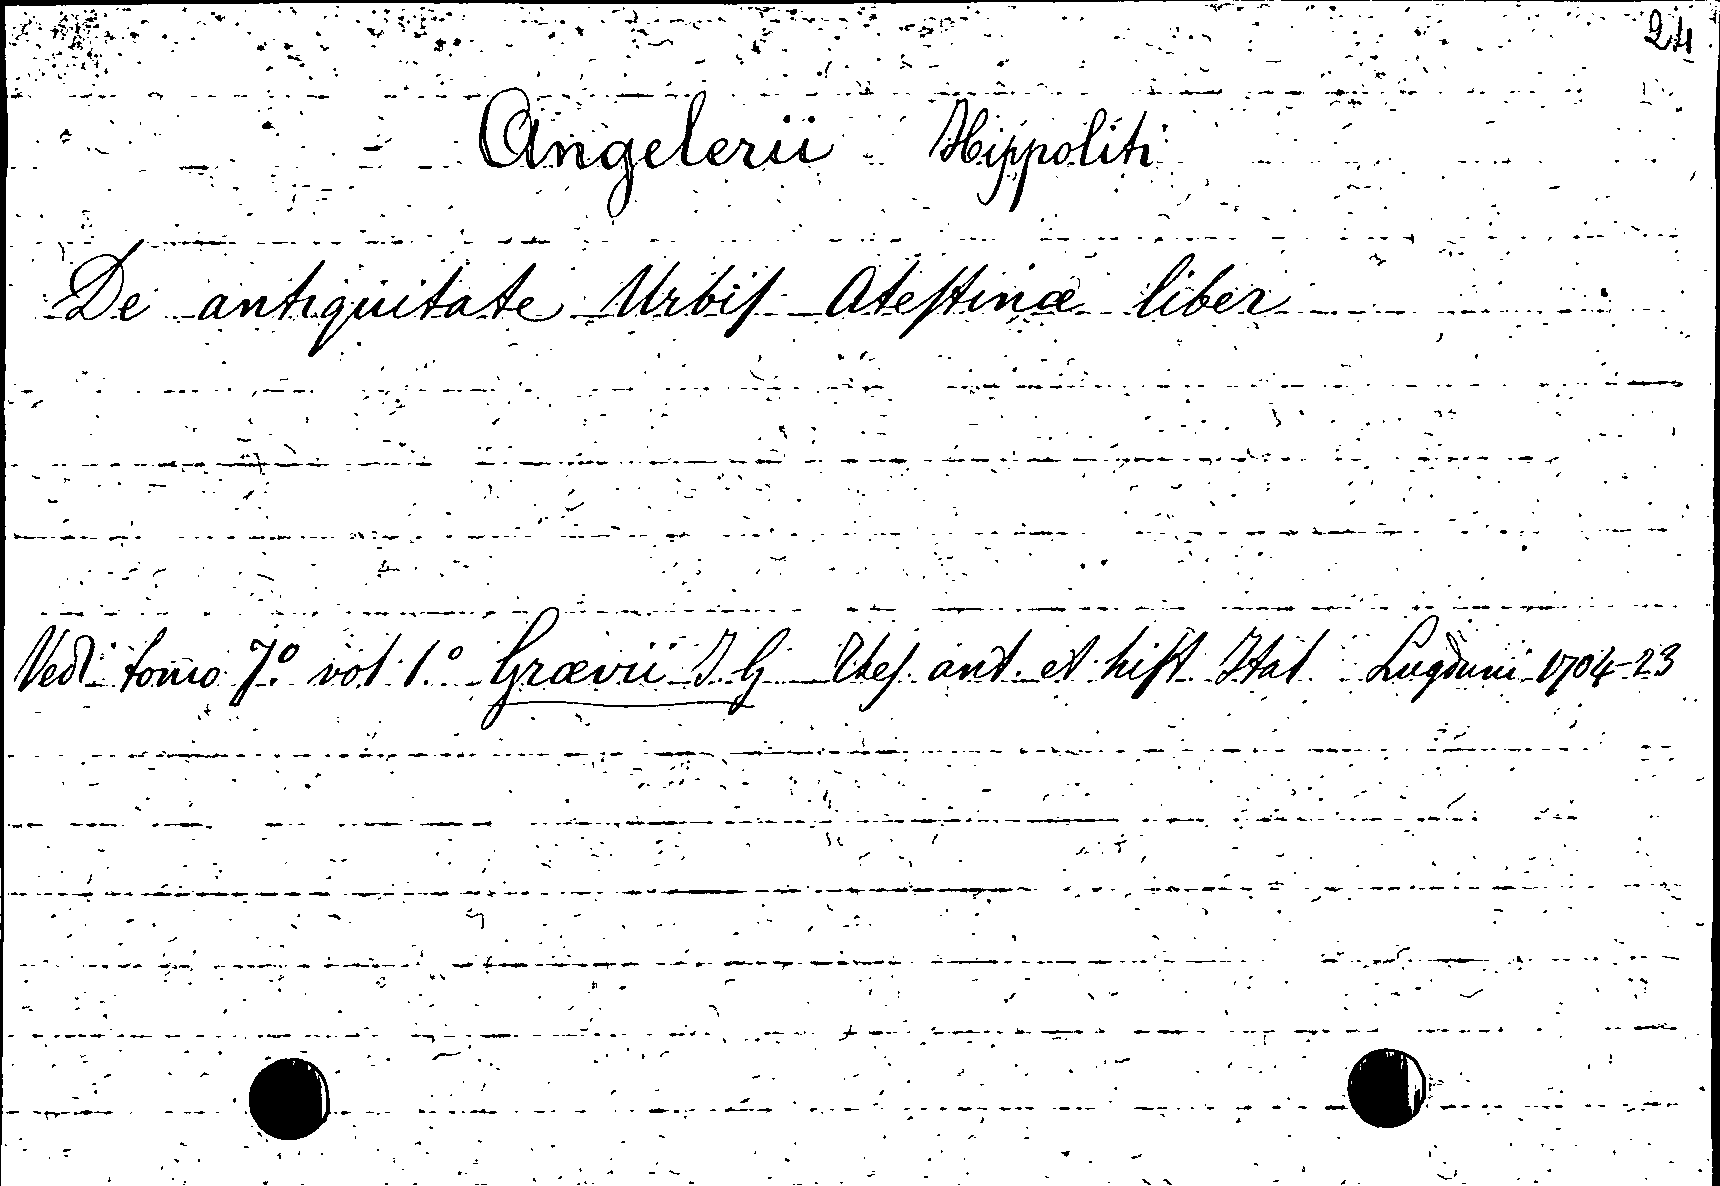 24
Angelerii Hippoliti
De antiquitate Urbiſ Ateſtinæ liber
Vedi tomo 7.º vol. 1.º Grævii I. G. Theſ. ant. et hiſt. Ital. Lugduni 1704-23